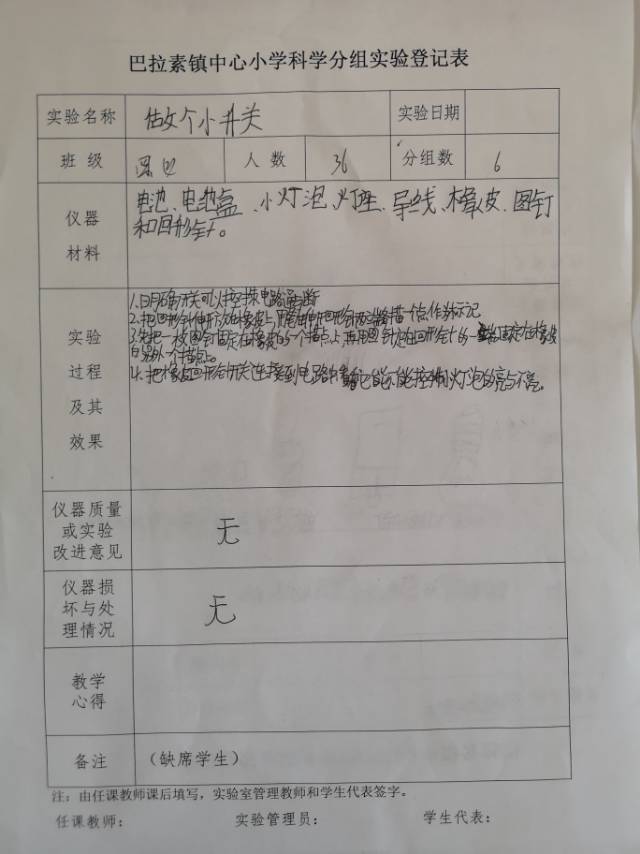 巴拉素镇中心小学科学分组实验登记表
实验名称 做个小开关 实验日期
班 级 四 人 数 36 分组数 6
仪器
材料
电池、电池盒、小灯泡、灯座、导线、橡皮、图钉
和回形针。
实验
过程
及其
效果
1.明确开关可以控制电路通断
2.把回形针伸开放在橡皮上,用铅笔把回形针两端描个点作为标记
3.先把一枚图钉固定在橡皮的一个描点上,再用图钉把回形针的一端固定在橡皮
的另外一个描点。
4.把橡皮回形针开关连接到电路中,看它能不能控制灯泡的亮与不亮。
仪器质量
或实验
改进意见
无
仪器损
坏与处
理情况
无
教学
心得
备注 (缺席学生)
注:由任课教师课后填写,实验室管理教师和学生代表签字。
任课教师: 实验管理员: 学生代表: